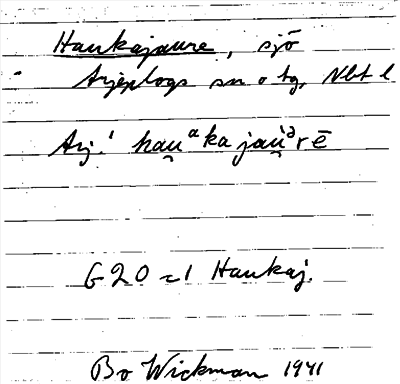 Haukajaure, sjö
Arjeplogs sn o tg, Nbt l
Arj.
G20 = 1 Haukaj.
Bo Wickman 1941